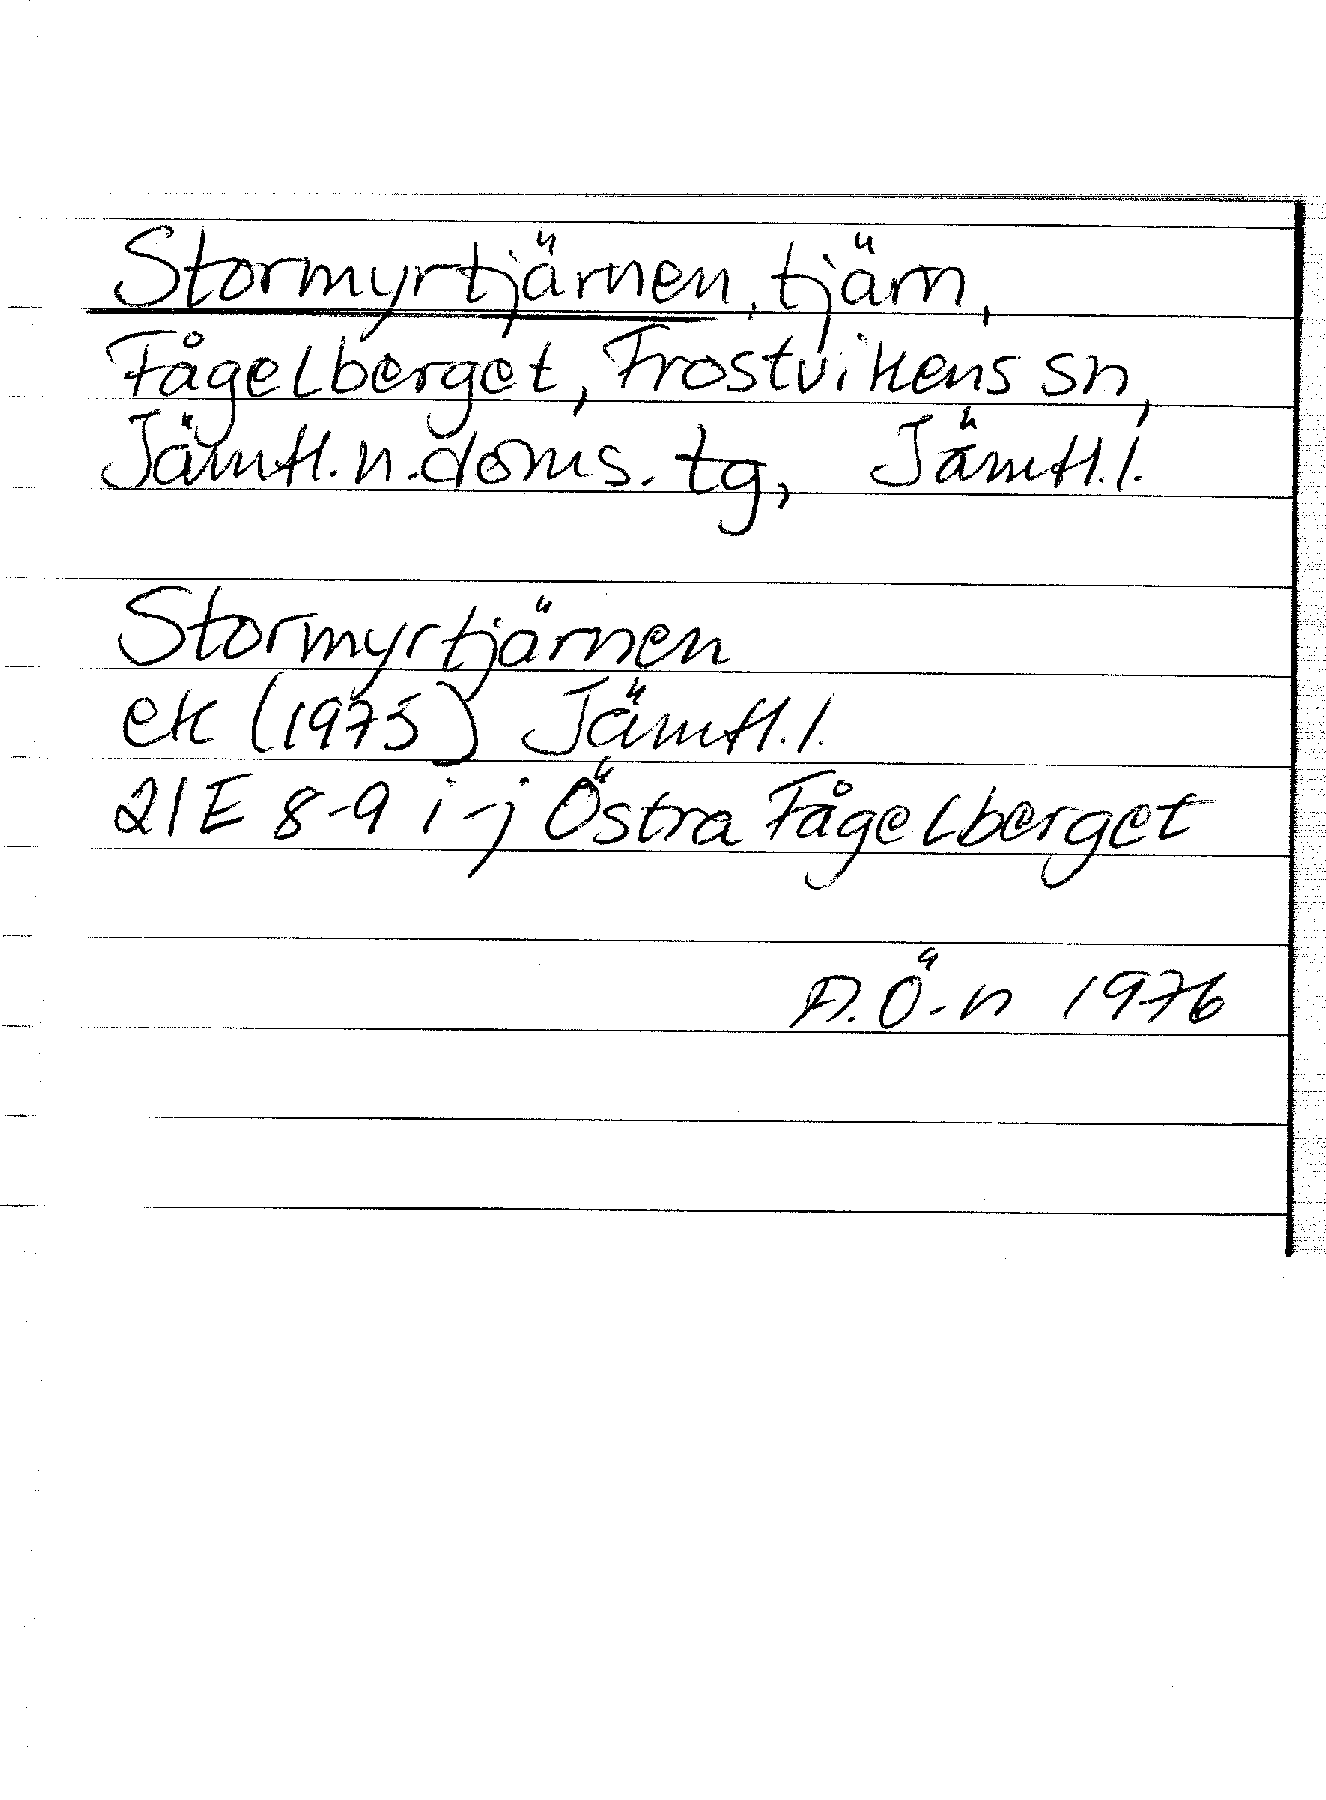 Stormyrtjärnen, tjärn,
Fågelberget, Frostvikens sn,
Jämtl. n. doms. tg, Jämtl. l.
Stormyrtjärnen
ek (1975) Jämtl. l.
21E 8-9 i-j Östra Fågelberget
A. Ö-n 1976